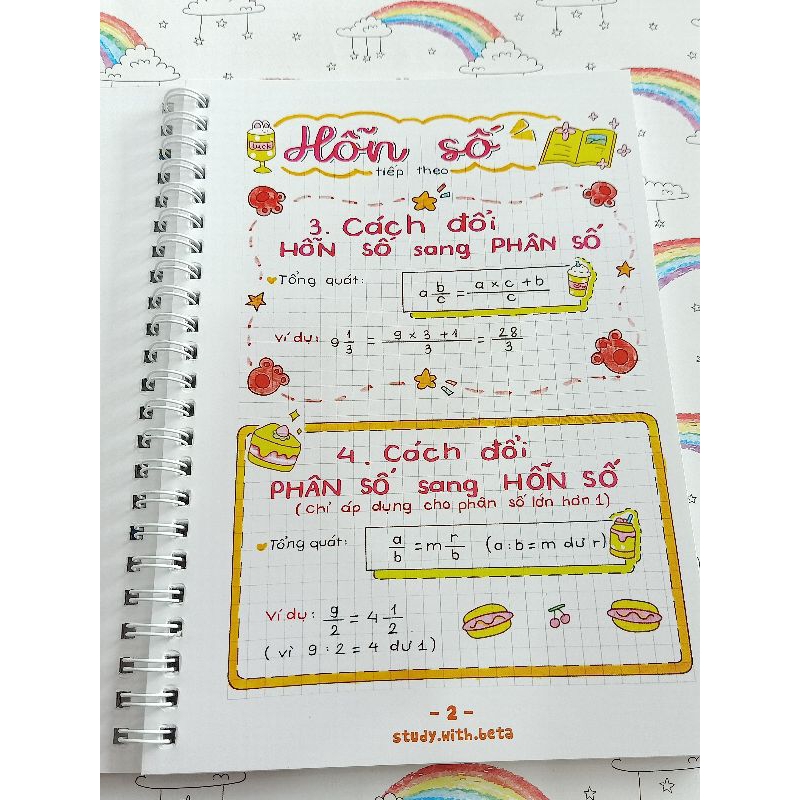 luck
Hỗn số
tiếp theo
3. Cách đổi
HỖN SỐ sang PHÂN SỐ
Tổng quát:
a b/c = a × c + b / c
Ví dụ: 9 1/3 = 9 × 3 + 1 / 3 = 28/3
4. Cách đổi
PHÂN SỐ sang HỖN SỐ
(chỉ áp dụng cho phân số lớn hơn 1)
Tổng quát:
a/b = m r/b (a : b = m dư r)
Ví dụ: 9/2 = 4 1/2
(vì 9 : 2 = 4 dư 1)
- 2 -
study.with.beta